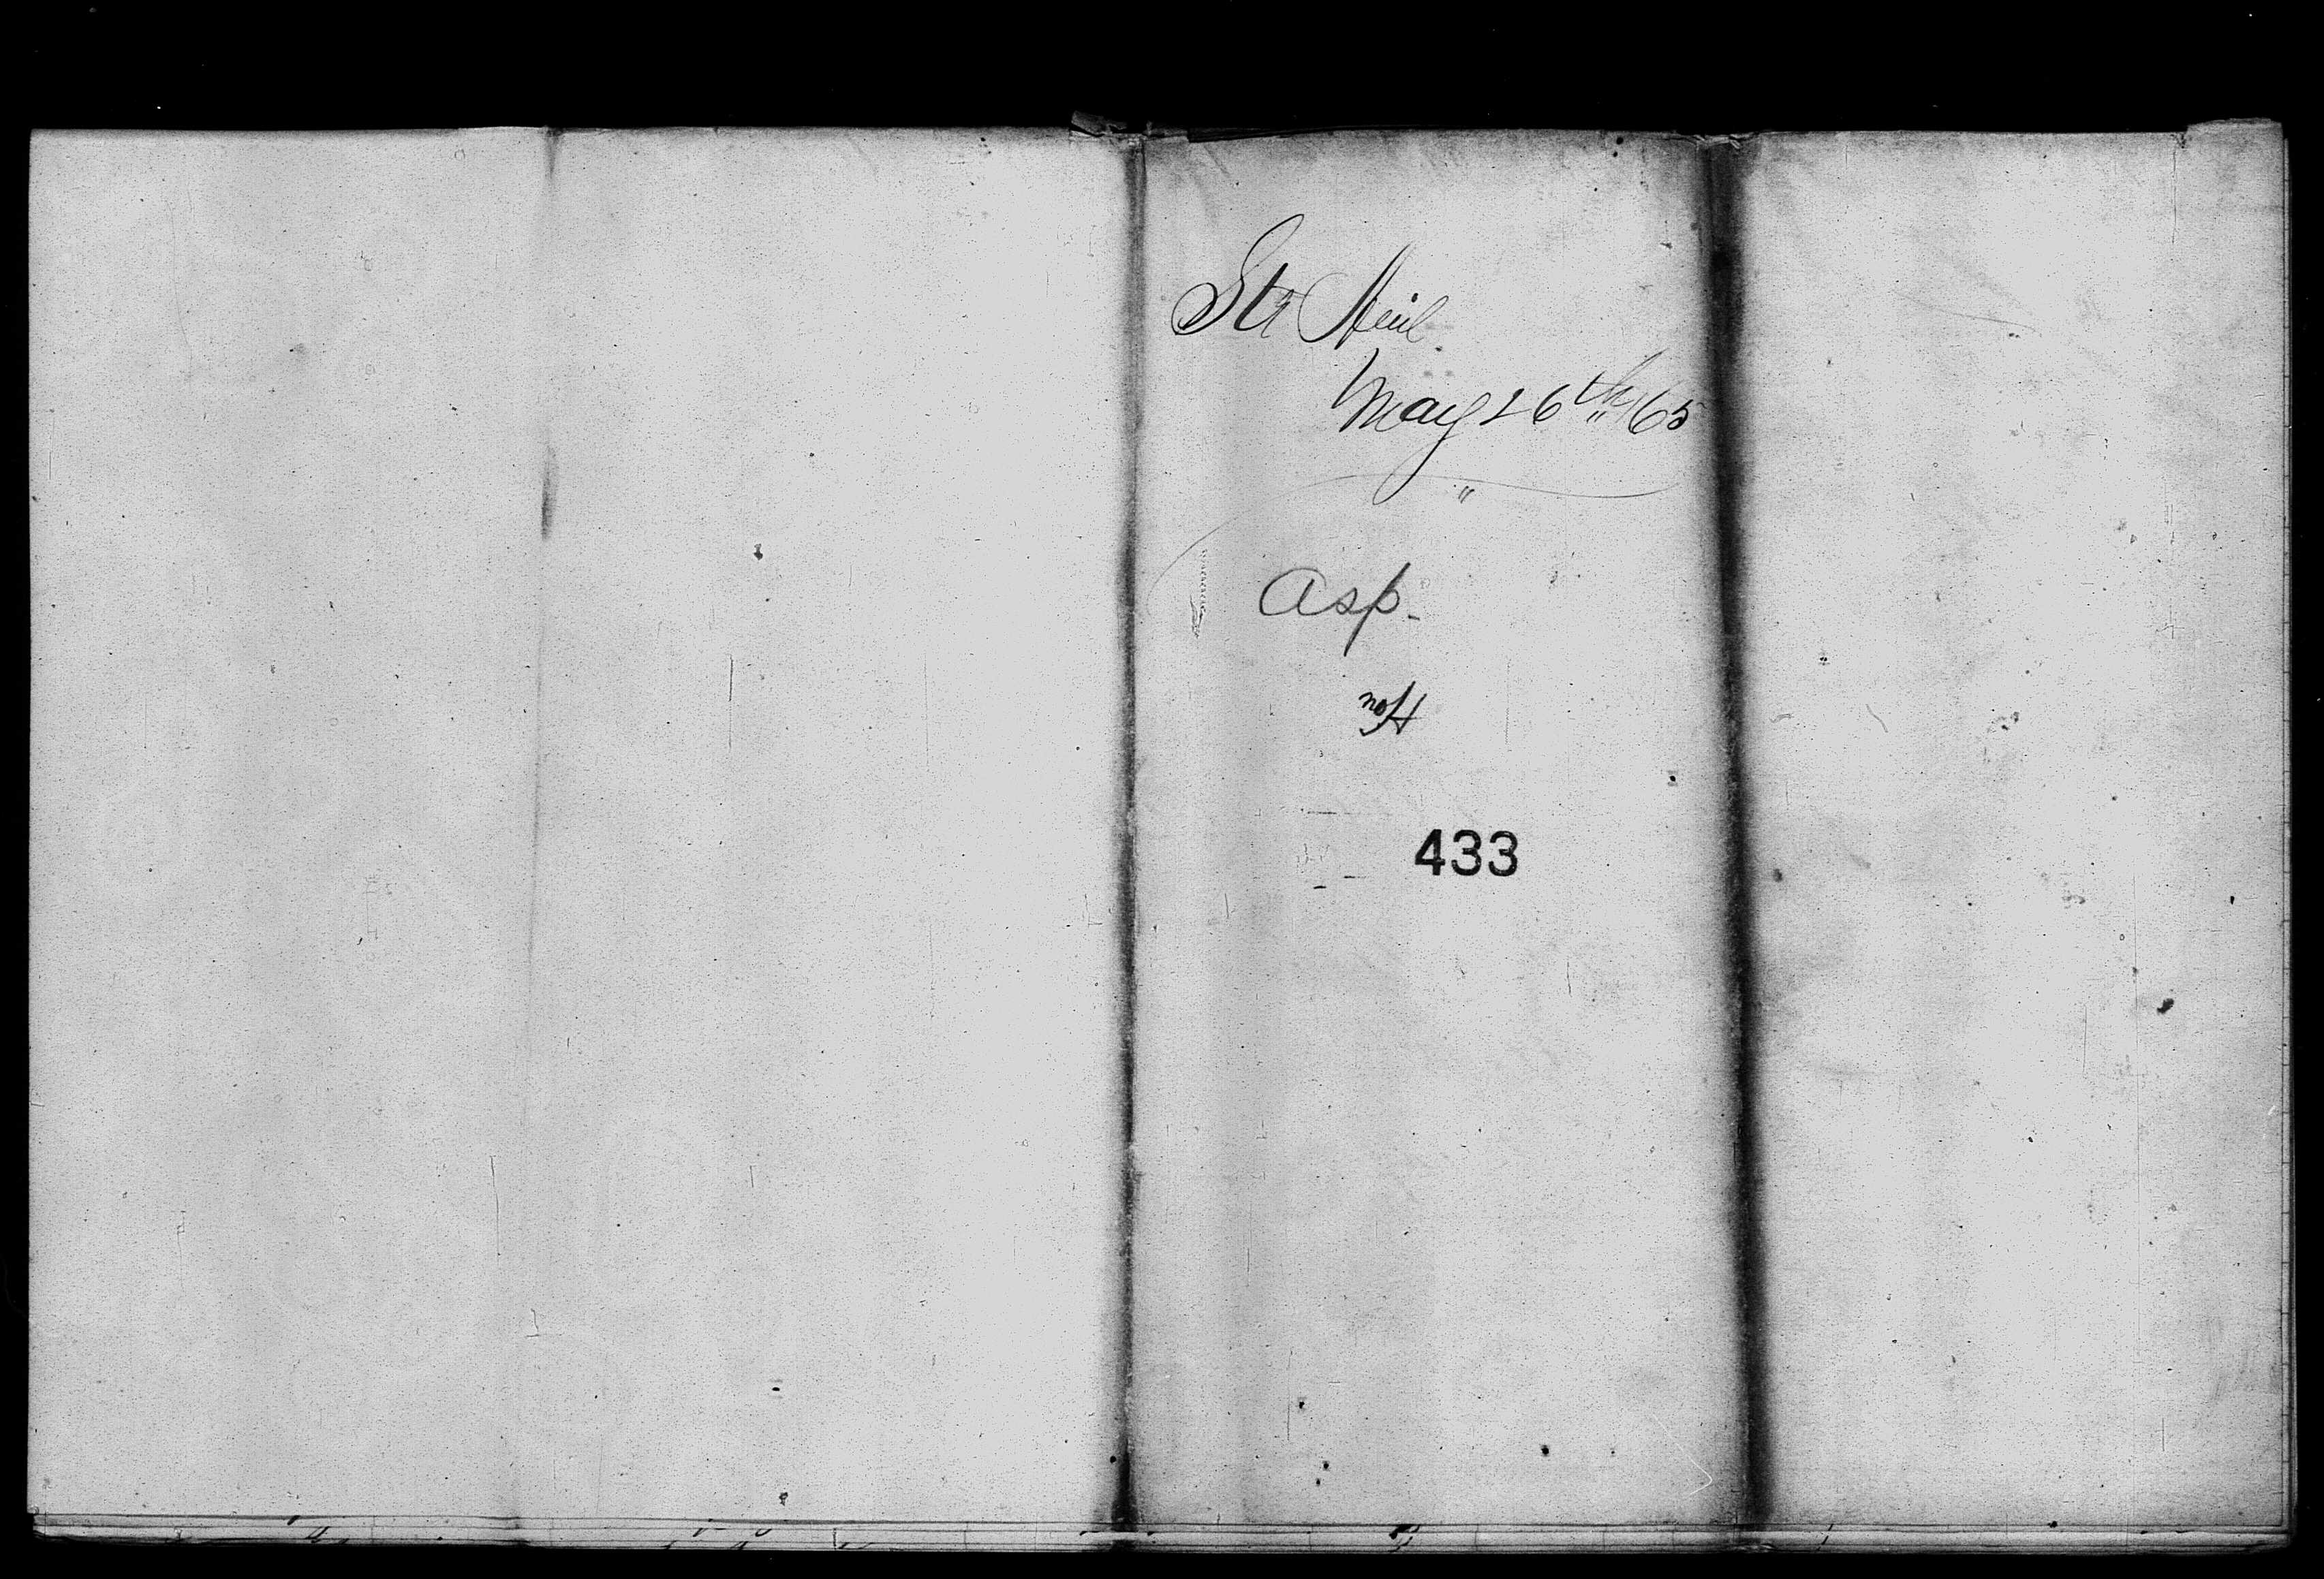 Str Neil
May 26th "65
"
Asp.
Hon
433